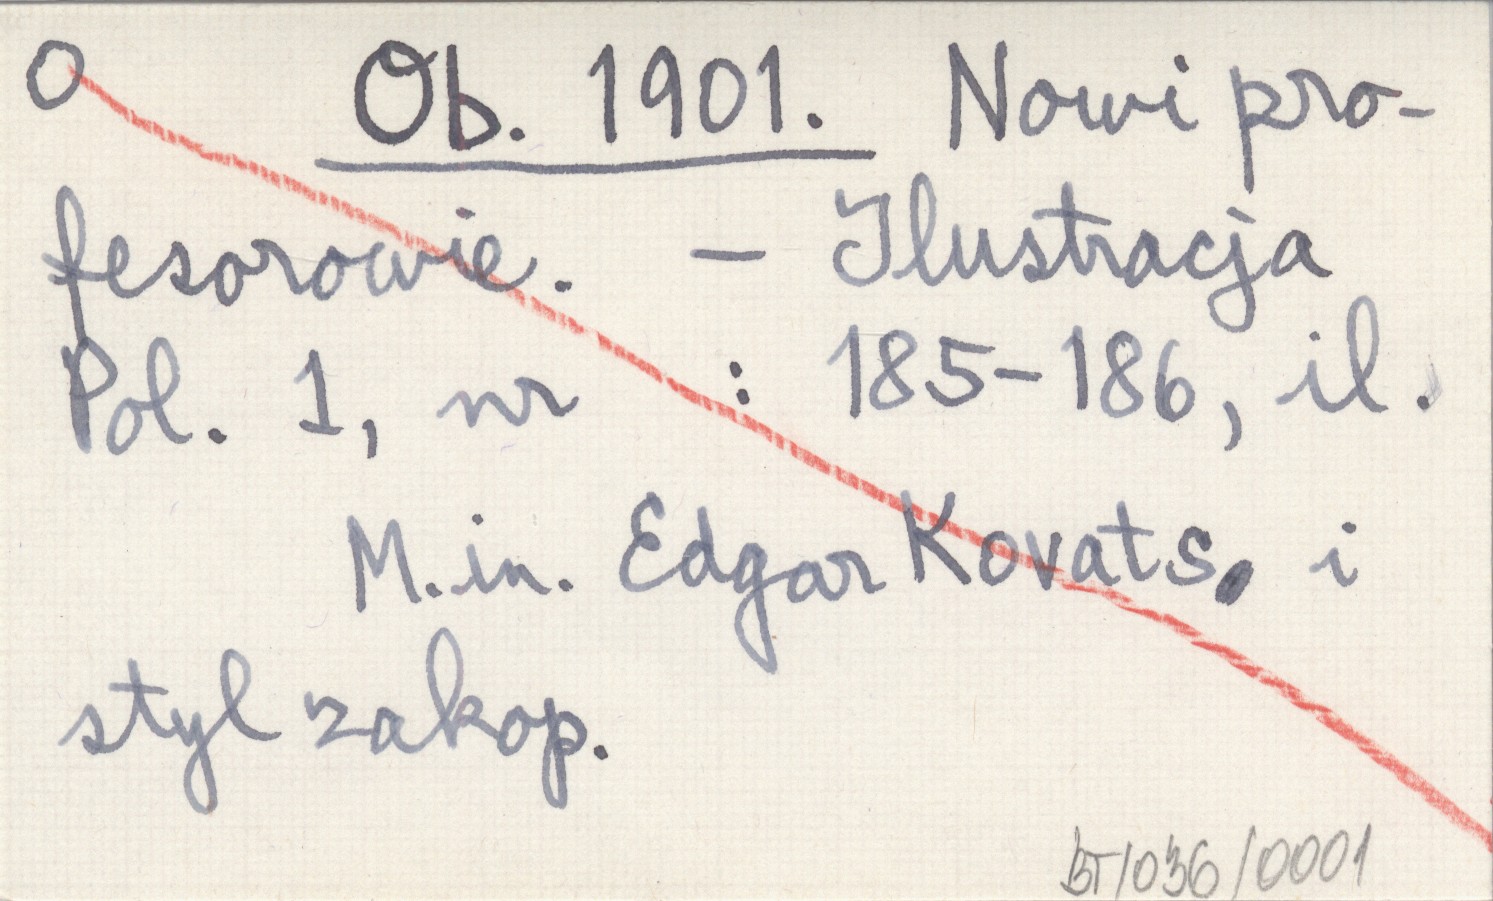 O Ob. 1901. Nowi pro-
fesorowie. – Ilustracja
Pol. 1, nr : 185-186, il.
M.in. Edgar Kovats. i
styl zakop.
BT/036/0001